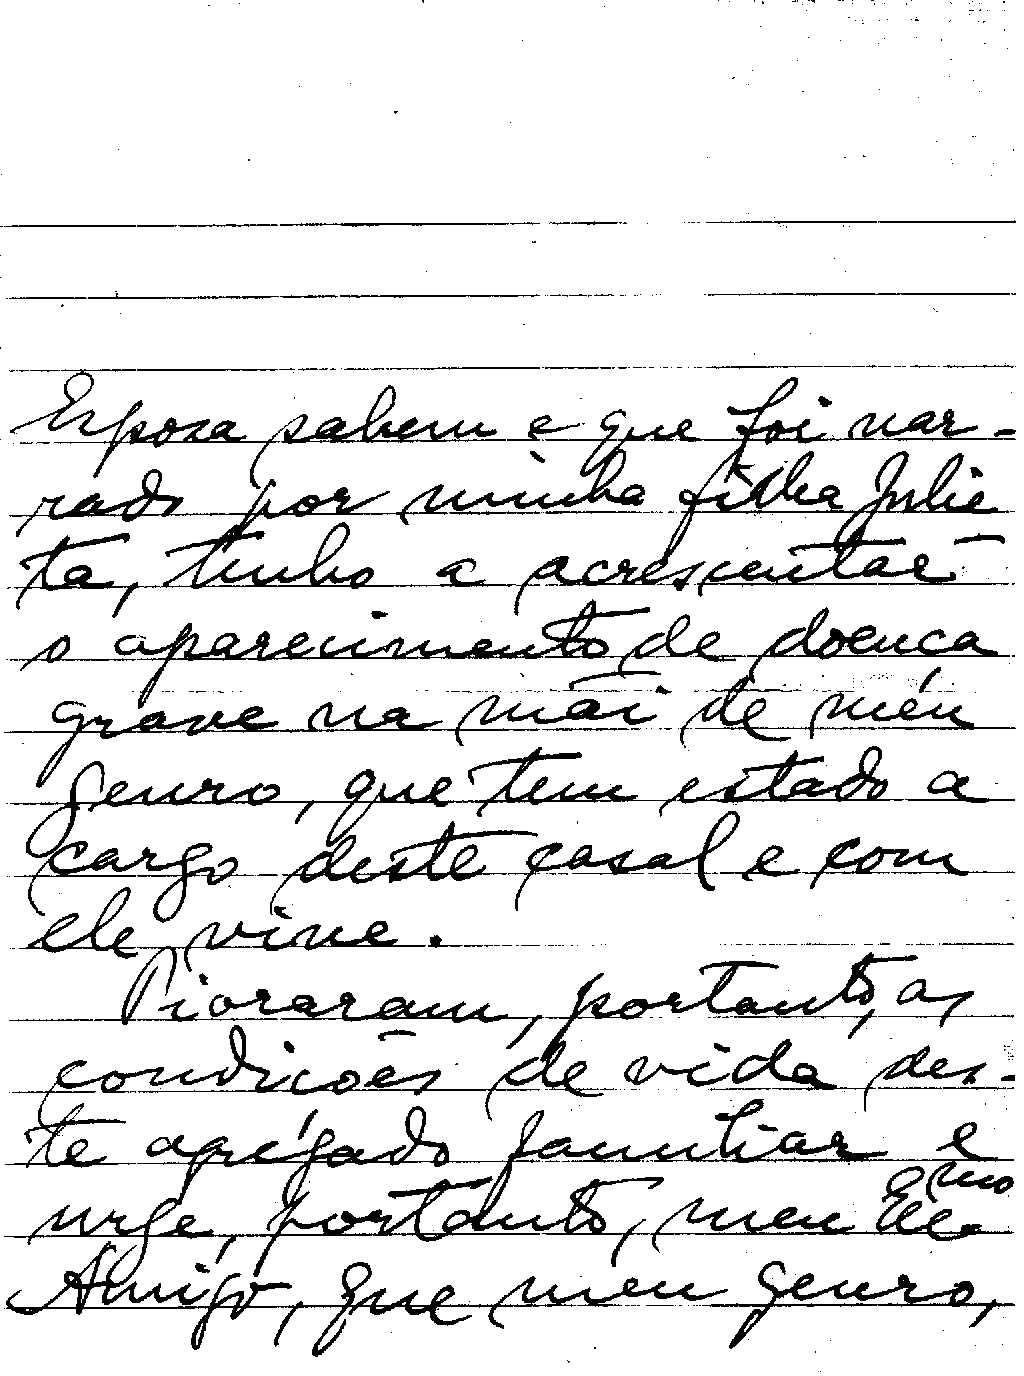 Esposa sabem e que foi nar-
rado por minha filha Julie
ta, tenho a acrescentar
o aparecimento de doença
grave na mãi de meu
genro, que tem estado a
cargo deste casal e com
ele vive.
Pioraram, portanto, as
condições de vida des-
te agregado familiar e
urge, portanto, meu Exmo
Amigo, que meu genro,